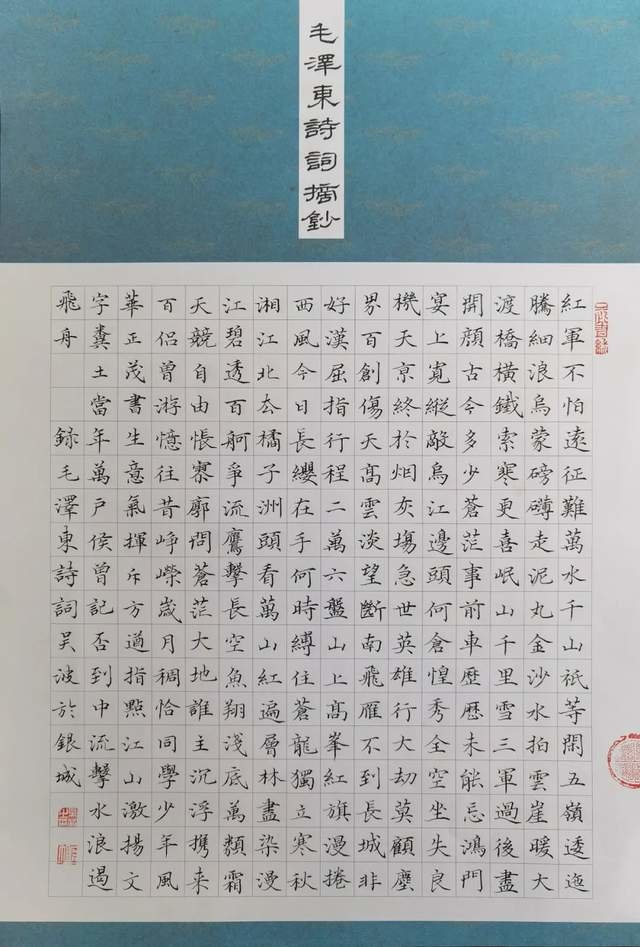 毛澤東詩詞摘鈔
紅軍不怕遠征難萬水千山祇等閑五嶺逶迤
騰細浪烏蒙磅礴走泥丸金沙水拍雲崖暖大
渡橋橫鐵索寒更喜岷山千里雪三軍過後盡
開顏古今多少蒼茫事前車歷歷未能忘鴻門
宴上寬縱敵烏江邊頭何倉惶秀全空坐失良
機天亰終於烟灰塲急世英雄行大劫莫顧塵
界百創傷天髙雲淡望斷南飛雁不到長城非
好漢屈指行程二萬六盤山上髙峯紅旗漫捲
西風今日長纓在手何時縛住蒼龍獨立寒秋
湘江北去橘子洲頭看萬山紅遍層林盡染漫
江碧透百舸爭流鷹擊長空魚翔淺底萬類霜
天競自由悵寥廓問蒼茫大地誰主沉浮携来
百侶曾游憶往昔崢嶸歲月稠恰同學少年風
華正茂書生意氣揮斥方遒指點江山激揚文
字糞土當年萬戶侯曾記否到中流擊水浪遏
飛舟 録毛澤東詩詞吴波於銀城